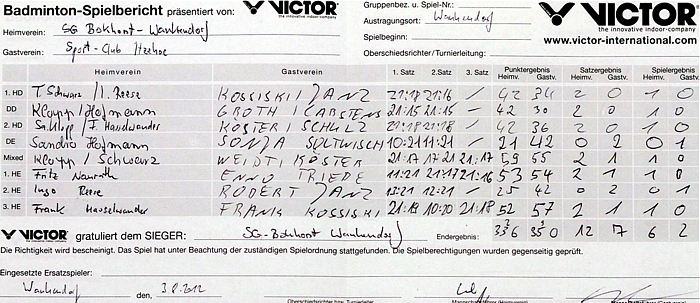 Badminton-Spielbericht präsentiert von: VICTOR
the innovative indoor-company
Gruppenbez. u. Spiel-Nr.:
VICTOR
the innovative indoor-company
www.victor-international.com
Heimverein: SG Bokhorst-Wankendorf
Austragungsort: Wankendorf
Gastverein: Sport-Club Itzehoe
Spielbeginn:
Oberschiedsrichter/Turnierleitung:
Heimverein Gastverein 1. Satz 2. Satz 3. Satz Punktergebnis Heimv. Gastv. Satzergebnis Heimv. Gastv. Spielergebnis Heimv. Gastv.
1. HD T. Schwarz / I. Reese KOSSISKI / JANZ 21:18 21:16 / 42 34 2 0 1 0
DD Klopp / Hofmann GROTH / CARSTENS 21:15 21:15 - 42 30 2 0 1 0
2. HD / F. KÖSTER / SCHULZ 21:18 21:18 - 42 36 2 0 1 0
DE Sandra Hofmann SONJA SOLTWISCH 10:21 11:21 - 21 42 0 2 0 1
Mixed Klopp / Schwarz WEIDTI KÖSTER 21:17 17:21 21:17 59 55 2 1 1 0
1. HE Fritz ENNO TRIEDE 21:17 11:21 21:16 53 54 2 1 1 0
2. HE Ingo Reese ROBERT JANZ 13:21 12:21 - 25 42 0 2 0 1
3. HE Frank FRANK KOSSISKI 21:19 21:18 52 57 2 1 1 0
VICTOR gratuliert dem SIEGER: SG-Bokhorst Wankendorf Endergebnis: 336 350 12 7 6 2
Die Richtigkeit wird bescheinigt. Das Spiel hat unter Beachtung der zuständigen Spielordnung stattgefunden. Die Spielberechtigungen wurden gegenseitig geprüft.
Eingesetzte Ersatzspieler:
Wankendorf den, 3.8.2012
Oberschiedsrichter bzw. Turnierleiter